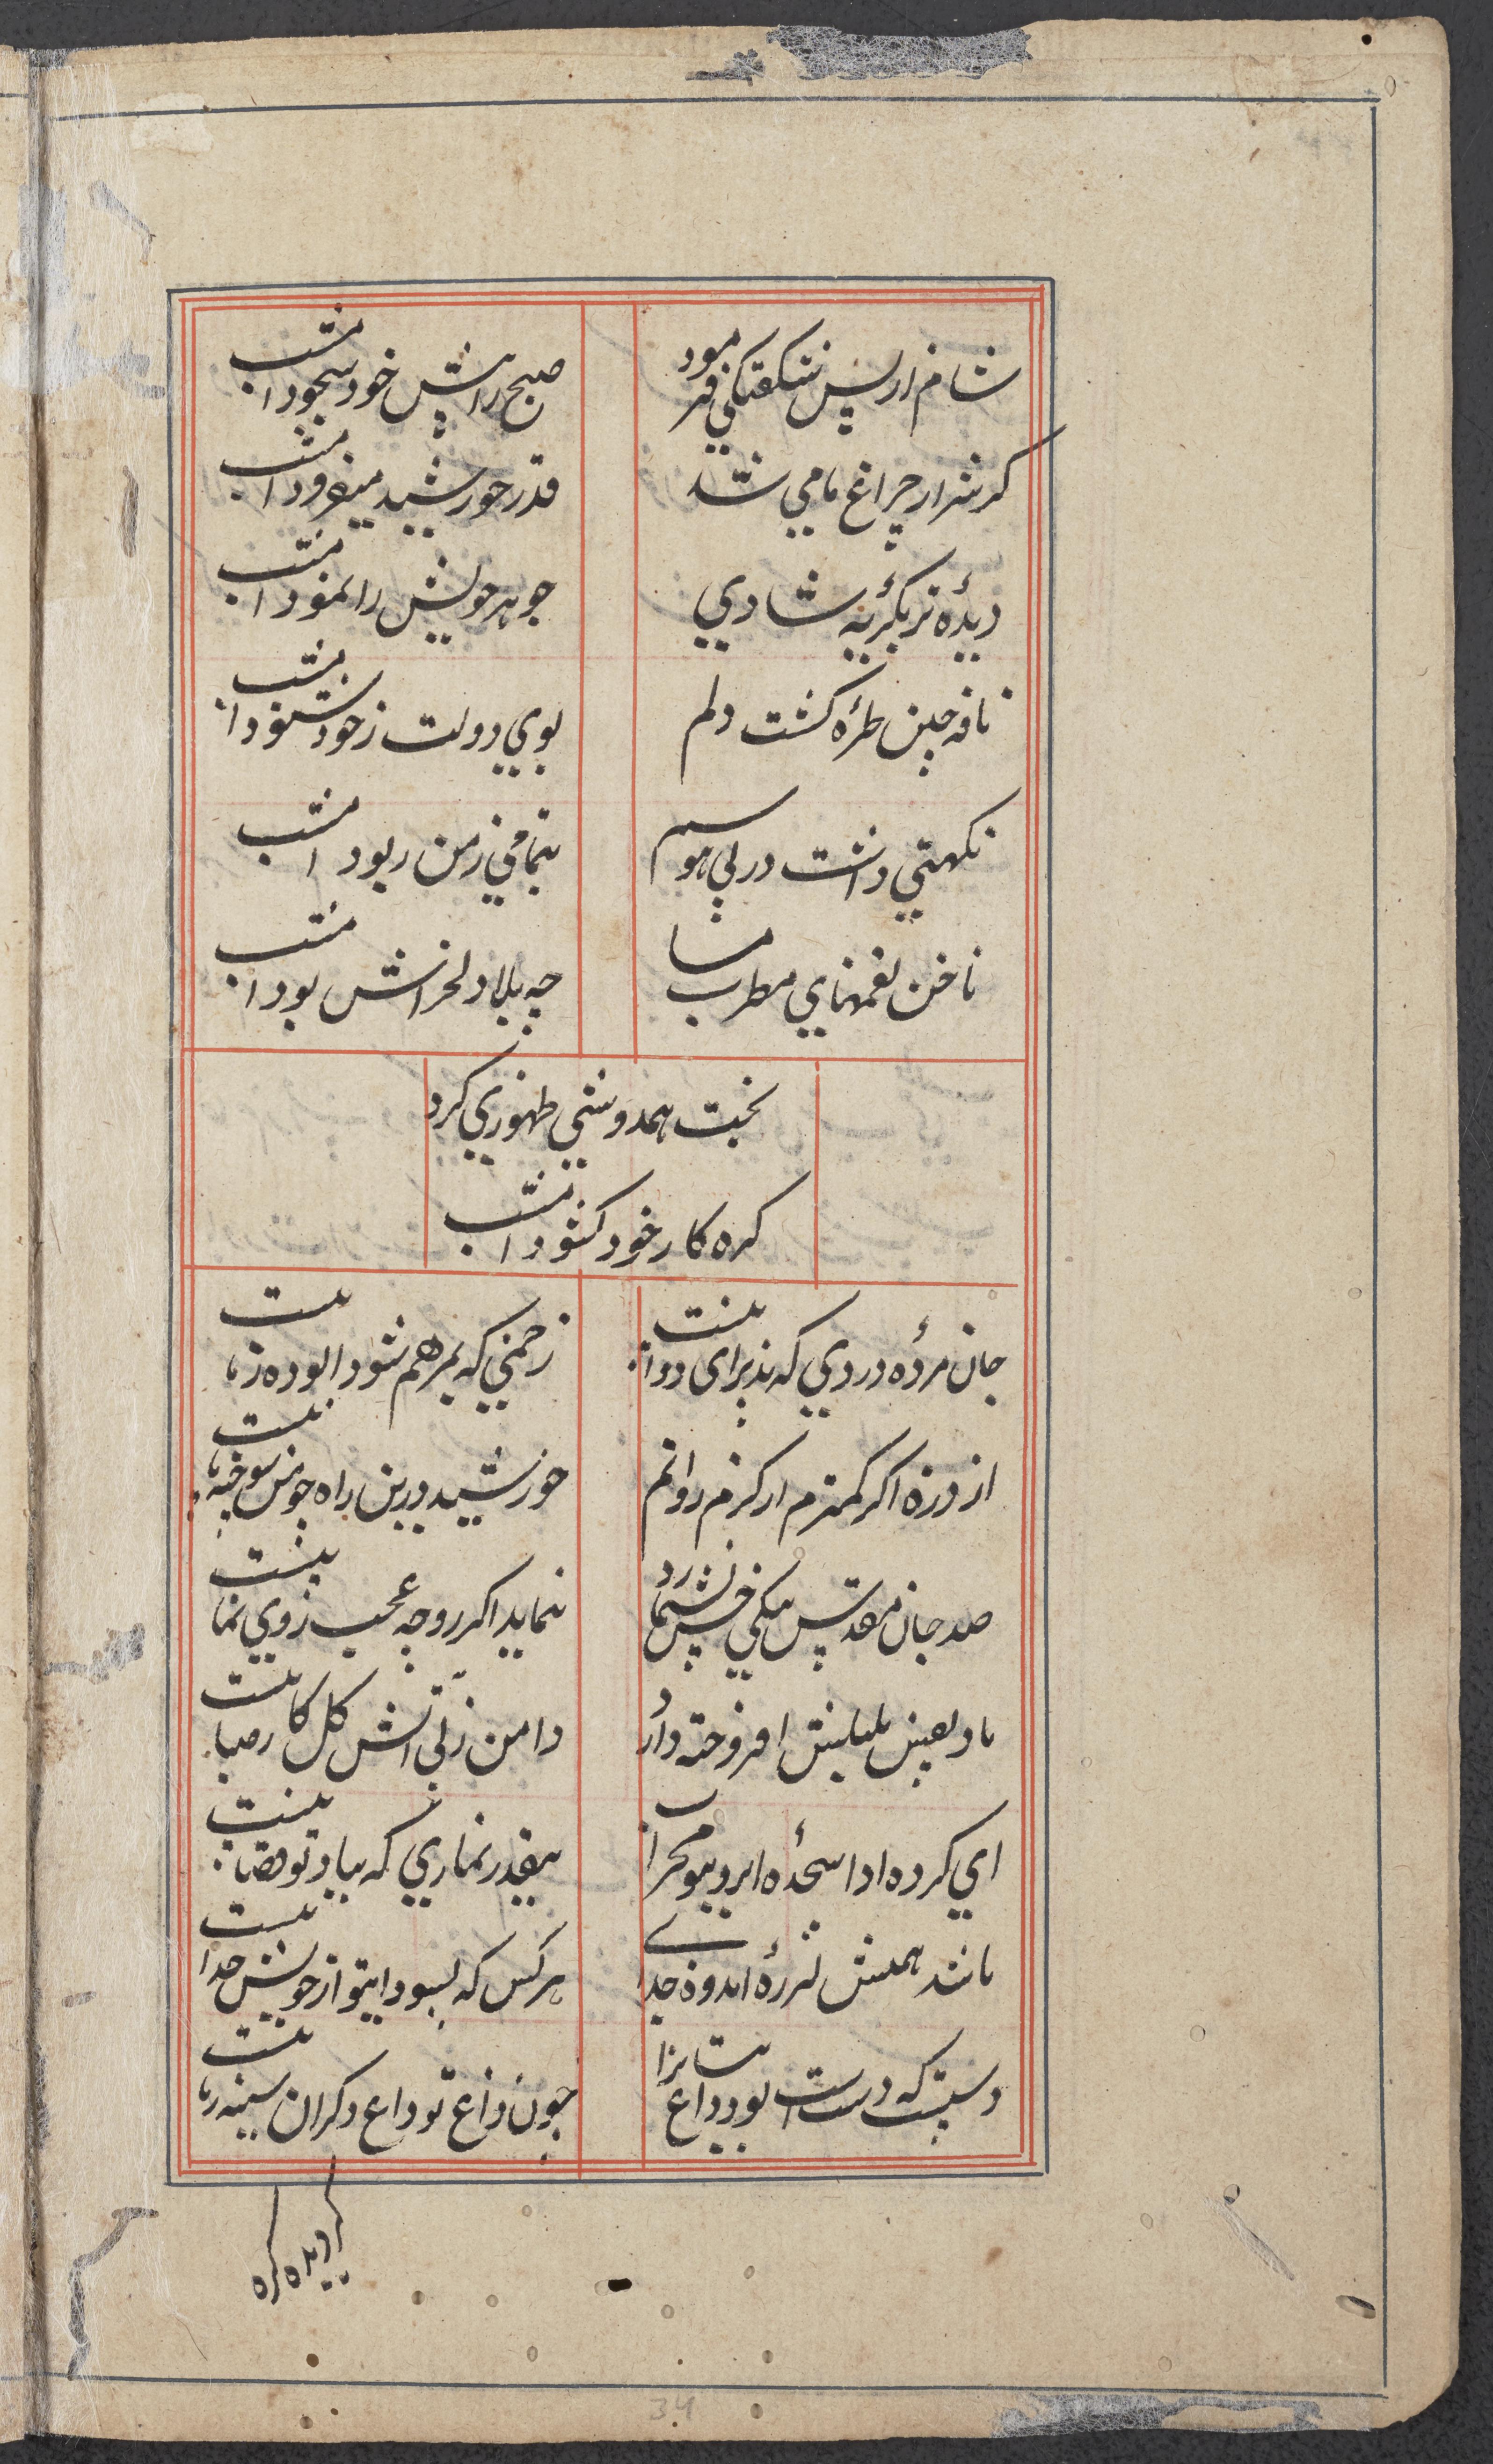 شام از بس شکفتگی فرمود
صبح را پیش خود سجود امشب
کز شرار چراغ ما می شد
قدر خورشید میفزود امشب
دیدهٔ تر بگریه شادی
جوهر خویش را نمود امشب
نافه چین طره گشت دلم
بوی دولت ز خود شنود امشب
نکهتی داشت در پی هوسم
بتمامی ز من ربود امشب
ناخن نغمهای مطرب ما
چه بلا دلخراش بود امشب
بخت همدوشی ظهوری کرد
کره کار خود کشود امشب
جان مرده دردی که پذیرای دوا نیست
زخمی که بمرهم شود الوده ز ما نیست
از ذره اکر کمترم ار کرم روانم
خورشید درین راه چو من سوخته پا نیست
صد جان مقدس بیکی خس نشمارد
ننماید اکر رو چه عجب روی نما نیست
باد نفس بلبلش افروخته دارد
دامن زنی اتش کل کار صبا نیست
ای کرده ادا سجدهٔ ابرو بتو محراب
بیقدر نمازی که بیاد تو قضا نیست
مانند همش شرره اندوه جدایی
هر کس که بسودای تو از خویش جدا نیست
دستیست که دست است بود داغ
چون داغ تو داغ دکران سینه ربا نیست
کردیده کره
34